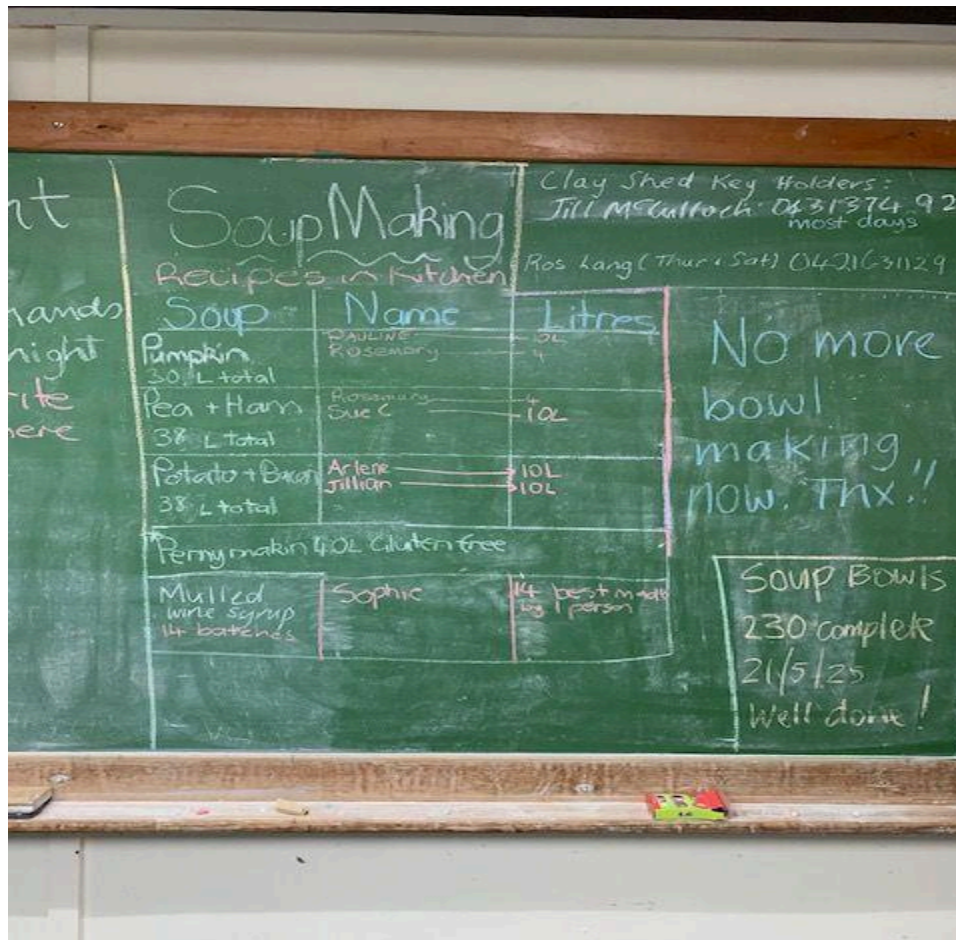 nt
hands
night
ite
here
Soup Making
Recipes in Kitchen
Soup Name Litres
Pumpkin
30 L total
PAULINE
Rosemary 4
Pea + Ham
38 L total
Rosemary 4
Sue C 10L
Potato + Bacon
38 L total
Arlene 10L
Jillian 10L
Penny makin 40L Gluten free
Mulled
wine syrup
14 batches
Sophie
14 best made
by 1 person
Clay Shed Key Holders:
Jill McCulloch 0431374 92
most days
Ros Lang (Thur + Sat)
No more
bowl
making
now. Thx.!!
SOUP BOWLS
230 complete
21/5/25
Well done!